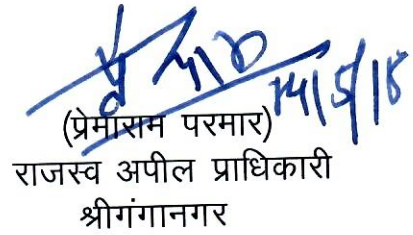 14/5/18
(प्रेमाराम परमार)
राजस्व अपील प्राधिकारी
श्रीगंगानगर